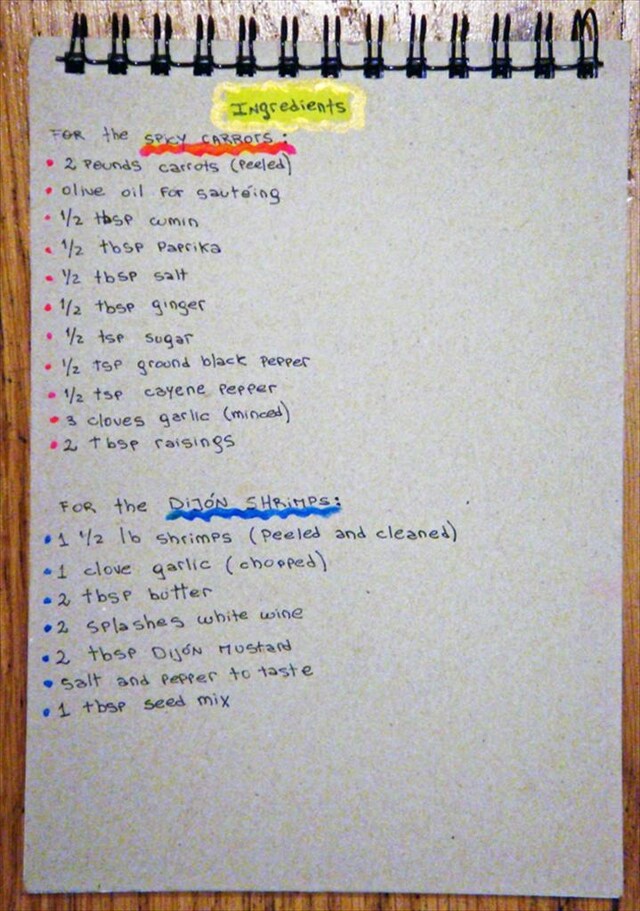 Ingredients
FOR the SPICY CARROTS:
• 2 Pounds carrots (Peeled)
• olive oil For sautéing
• 1/2 tbsp cumin
• 1/2 tbsp Paprika
• 1/2 tbsp salt
• 1/2 tbsp ginger
• 1/2 tsp sugar
• 1/2 tsp ground black pepper
• 1/2 tsp cayene pepper
• 3 cloves garlic (minced)
• 2 tbsp raisings
FOR the DIJÓN SHRIMPS:
• 1 1/2 lb shrimps (Peeled and cleaned)
• 1 clove garlic (chopped)
• 2 tbsp butter
• 2 splashes white wine
• 2 tbsp Dijón Mustard
• salt and pepper to taste
• 1 tbsp seed mix